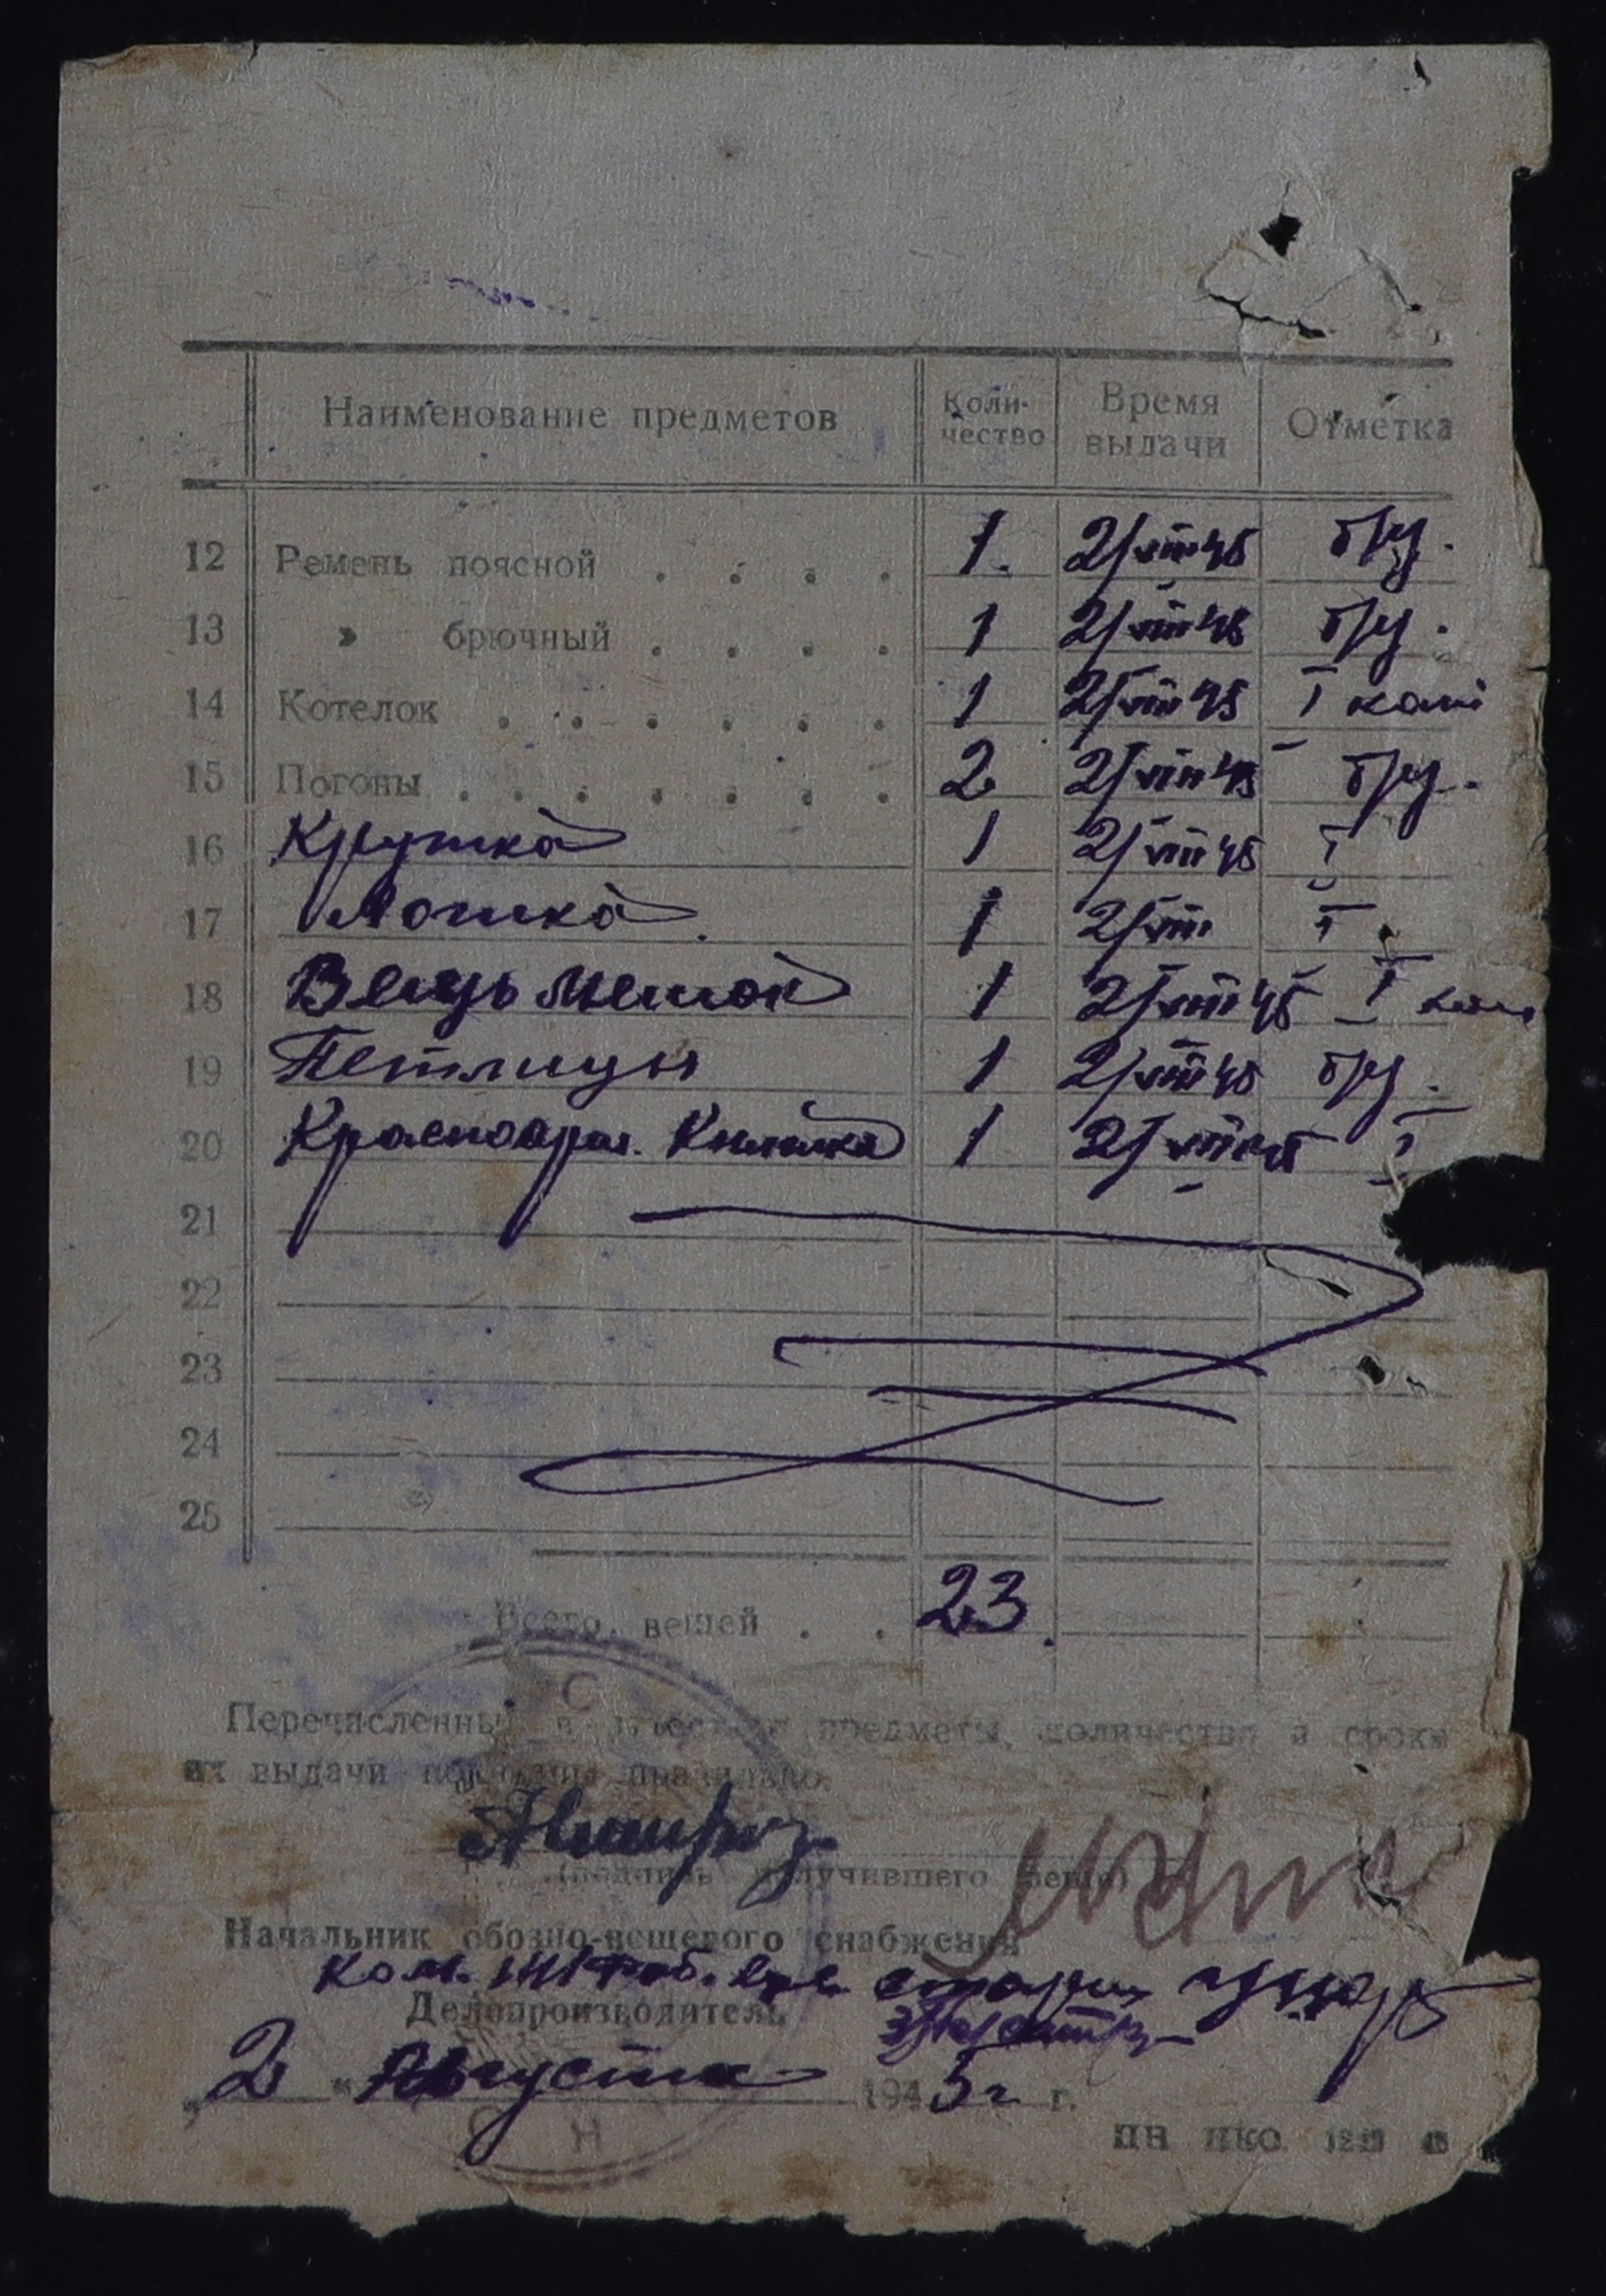 Наименование предметов Коли-чество Время выдачи Отметка
12 Ремень поясной . . . . 1. 2/VIII 45 б/у.
13 » брючный . . . . 1 2/VIII 45 б/у.
14 Котелок . . . . . . 1 2/VIII 45 I кат
15 Погоны . . . . . . . 2 2/VIII 45 б/у.
16 Кружка 1 2/VIII 45 I
17 Ложка. 1 2/VIII I
18 Вещь мешок 1 2/VIII 45 I кат
19 Петлицы 1 2/VIII 45 б/у.
20 Красноарм. Книжка 1 2/VIII 45 I
21
22
23
24
25
Всего вещей . . 23.
Перечисленные в аттестате предметы, количество и сроки
их выдачи показаны правильно.
(подпись получившего вещи)
Начальник обозно-вещевого снабжения
Ком.
Делопроизводитель
„2" Августа 1945г г.